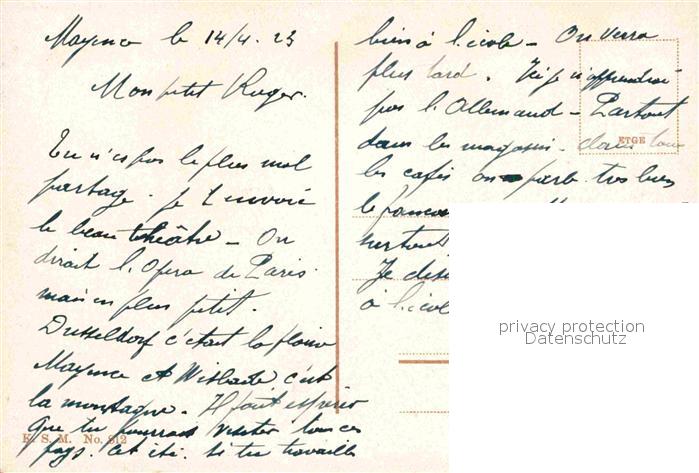 Mayence le 14/4. 23
Mon petit Roger.
Tu n'es pas le plus mal
partagé. Je t'envoie
le beau théâtre – On
dirait l'Opera de Paris
mais en plus petit.
Dusseldorf c'était la plaine
Mayence et Wisbade c'est
la montagne. Il faut espérer
que tu pourras visiter tous ces
pays. cet été. Si tu travailles
K. S. M. No. 912
bien à l'école – On verra
plus tard. Ici je n'apprendrai
pas l'Allemand – Partout
dans les magasins. dans tous
les cafés on parle très bien
le
surtout
Je
à l'école
ETGE
privacy protection
Datenschutz